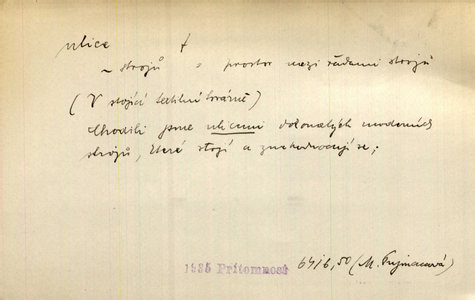 ulice f
~ strojů = prostor mezi řadami strojů
(V stojící textilní továrně)
Chodili jsme ulicemi dokonalých moderních
strojů, které stojí a znehodnocují se;
1935 Přítomnost 6416,50 (M.